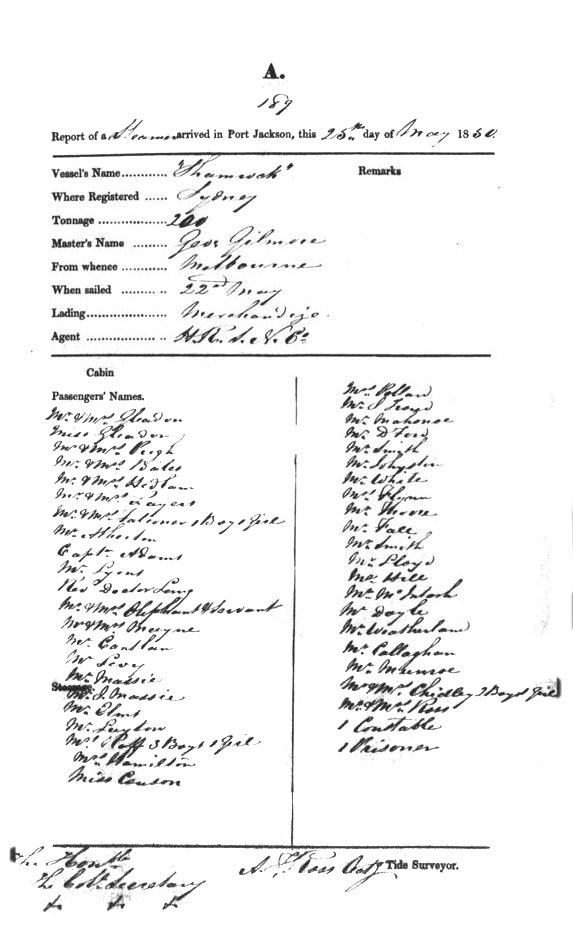 A.
189
Report of a Steamer arrived in Port Jackson, this 25th day of May 1850.
Vessel's Name............ "Shamrock"
Remarks
Where Registered ...... Sydney
Tonnage .................. 200
Master's Name ......... Geo. Gilmore
From whence ............ Melbourne
When sailed ......... .. 22nd May
Lading..................... Merchandize.
Agent .................. .. H.R.S.N. Co
Cabin
Passengers' Names.
Mr & Mrs Gleadon
Miss Gleadon
Mr & Mrs Pugh
Mr & Mrs Bates
Mr & Mrs Hedlam
Mr & Mrs
Mr & Mrs Falconer 1 Boy 1 Girl
Mr Atherton
Captn Adams
Mr Lyons
Revd Doctor Lang
Mr & Mrs Oliphant & Servant
Mr & Mrs Mayne
Mr
Mr Levy
Mr Massie
Steerage
Mr J. Massie
Mr Elms
Mr Layton
Mrs 3 Boys 1 Girl
Mrs Hamilton
Miss
Mrs
Mr
Mr
Mr D Ford
Mr Smith
Mr
Mr White
Mrs Flynn
Mr Moore
Mr Fall
Mr Smith
Mr Lloyd
Mr Hill
Mr McIntosh
Mr Doyle
Mr
Mr Callaghan
Mr Munroe
Mr & Mrs Chidley 2 Boys 1 Girl
Mr & Mrs Ross
1 Constable
1 Prisoner
The Honble
The Coll. Secretary
& & &
Ross Actg Tide Surveyor.